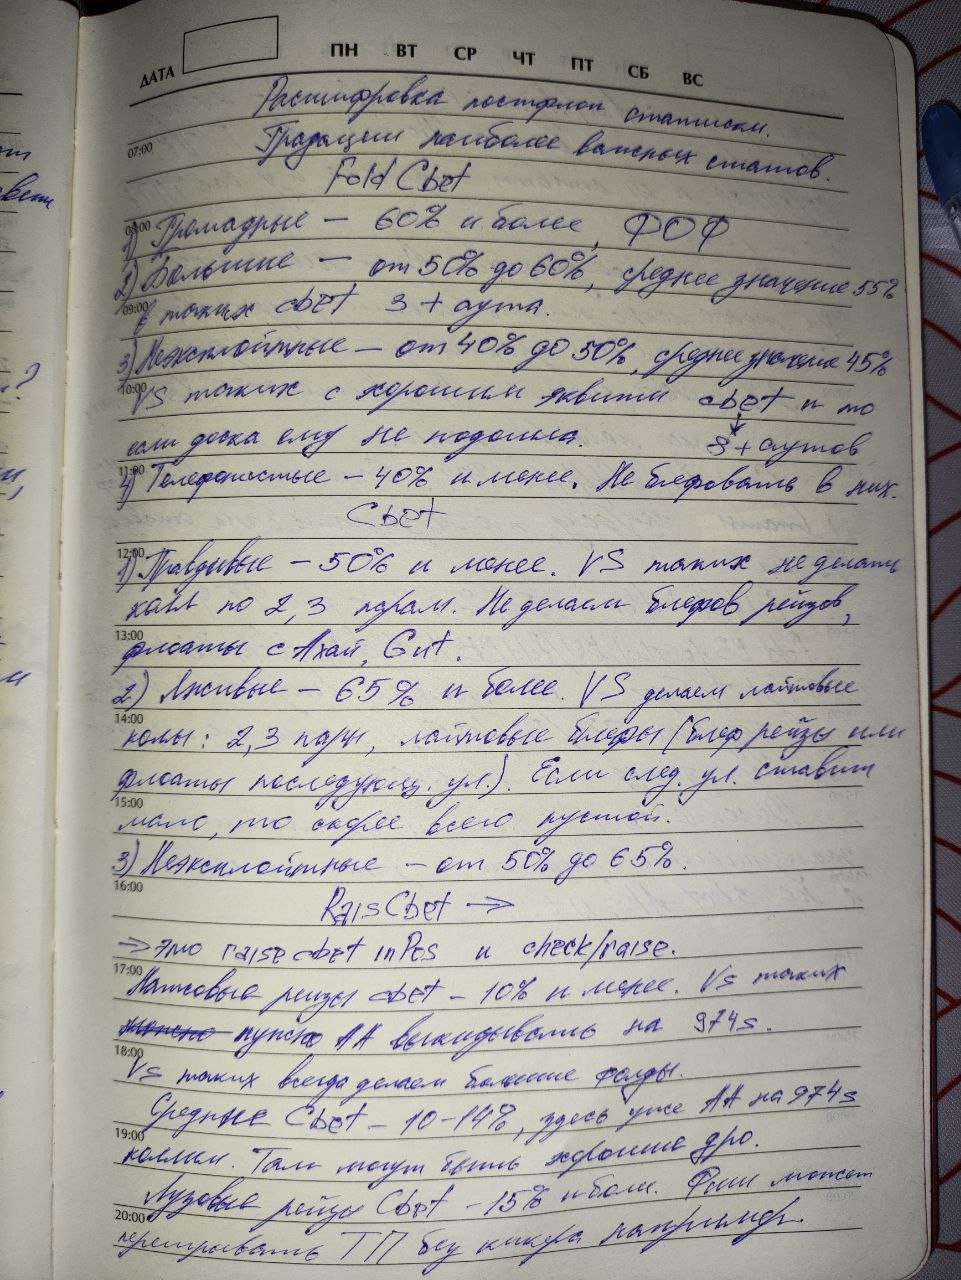 ДАТА ПН ВТ СР ЧТ ПТ СБ ВС
Расшифровка постфлоп статистки.
07:00 Градации наиболее важных статов.
Fold Cbet
08:00
1) Громадные – 60% и более, ФОФ
2) Большие – от 50% до 60%, среднее значение 55%
09:00 в таких cbet 3+ аута.
3) Неэксплойтные – от 40% до 50%, среднее значение 45%
10:00 VS таких с хорошим эквити cbet и то
если доска ему не подошла. 3+ аутов
11:00
4) Телефонистые – 40% и менее. Не блефовать в них.
Cbet
12:00
1) Правдивые – 50% и менее. VS таких не делать
колл по 2, 3 парам. Не делаем блефов рейзов,
13:00 флоаты с Ахай, Gut.
2) Лживые – 65% и более. VS делаем лайтовые
14:00 колы: 2,3 пары, лайтовые блефы (блеф рейзы или
флоаты последующ. ул.). Если след. ул. ставит
15:00 мало, то скорее всего пустой.
3) Неэксплойтные – от 50% до 65%.
16:00 RaisCbet →
→ это raise cbet inPos и check/raise.
17:00 Натсовые рейзы cbet – 10% и менее. Vs таких
можно нужно АА выкидывать на 974s.
18:00 Vs таких всегда делаем большие фолды.
Средние Cbet – 10-14%, здесь уже АА на 974s
19:00 коллим. Там могут быть хорошие дро.
Лузовые рейзы Cbet – 15% и боли. Фиш может
20:00 переигрывать ТП без кикера например.